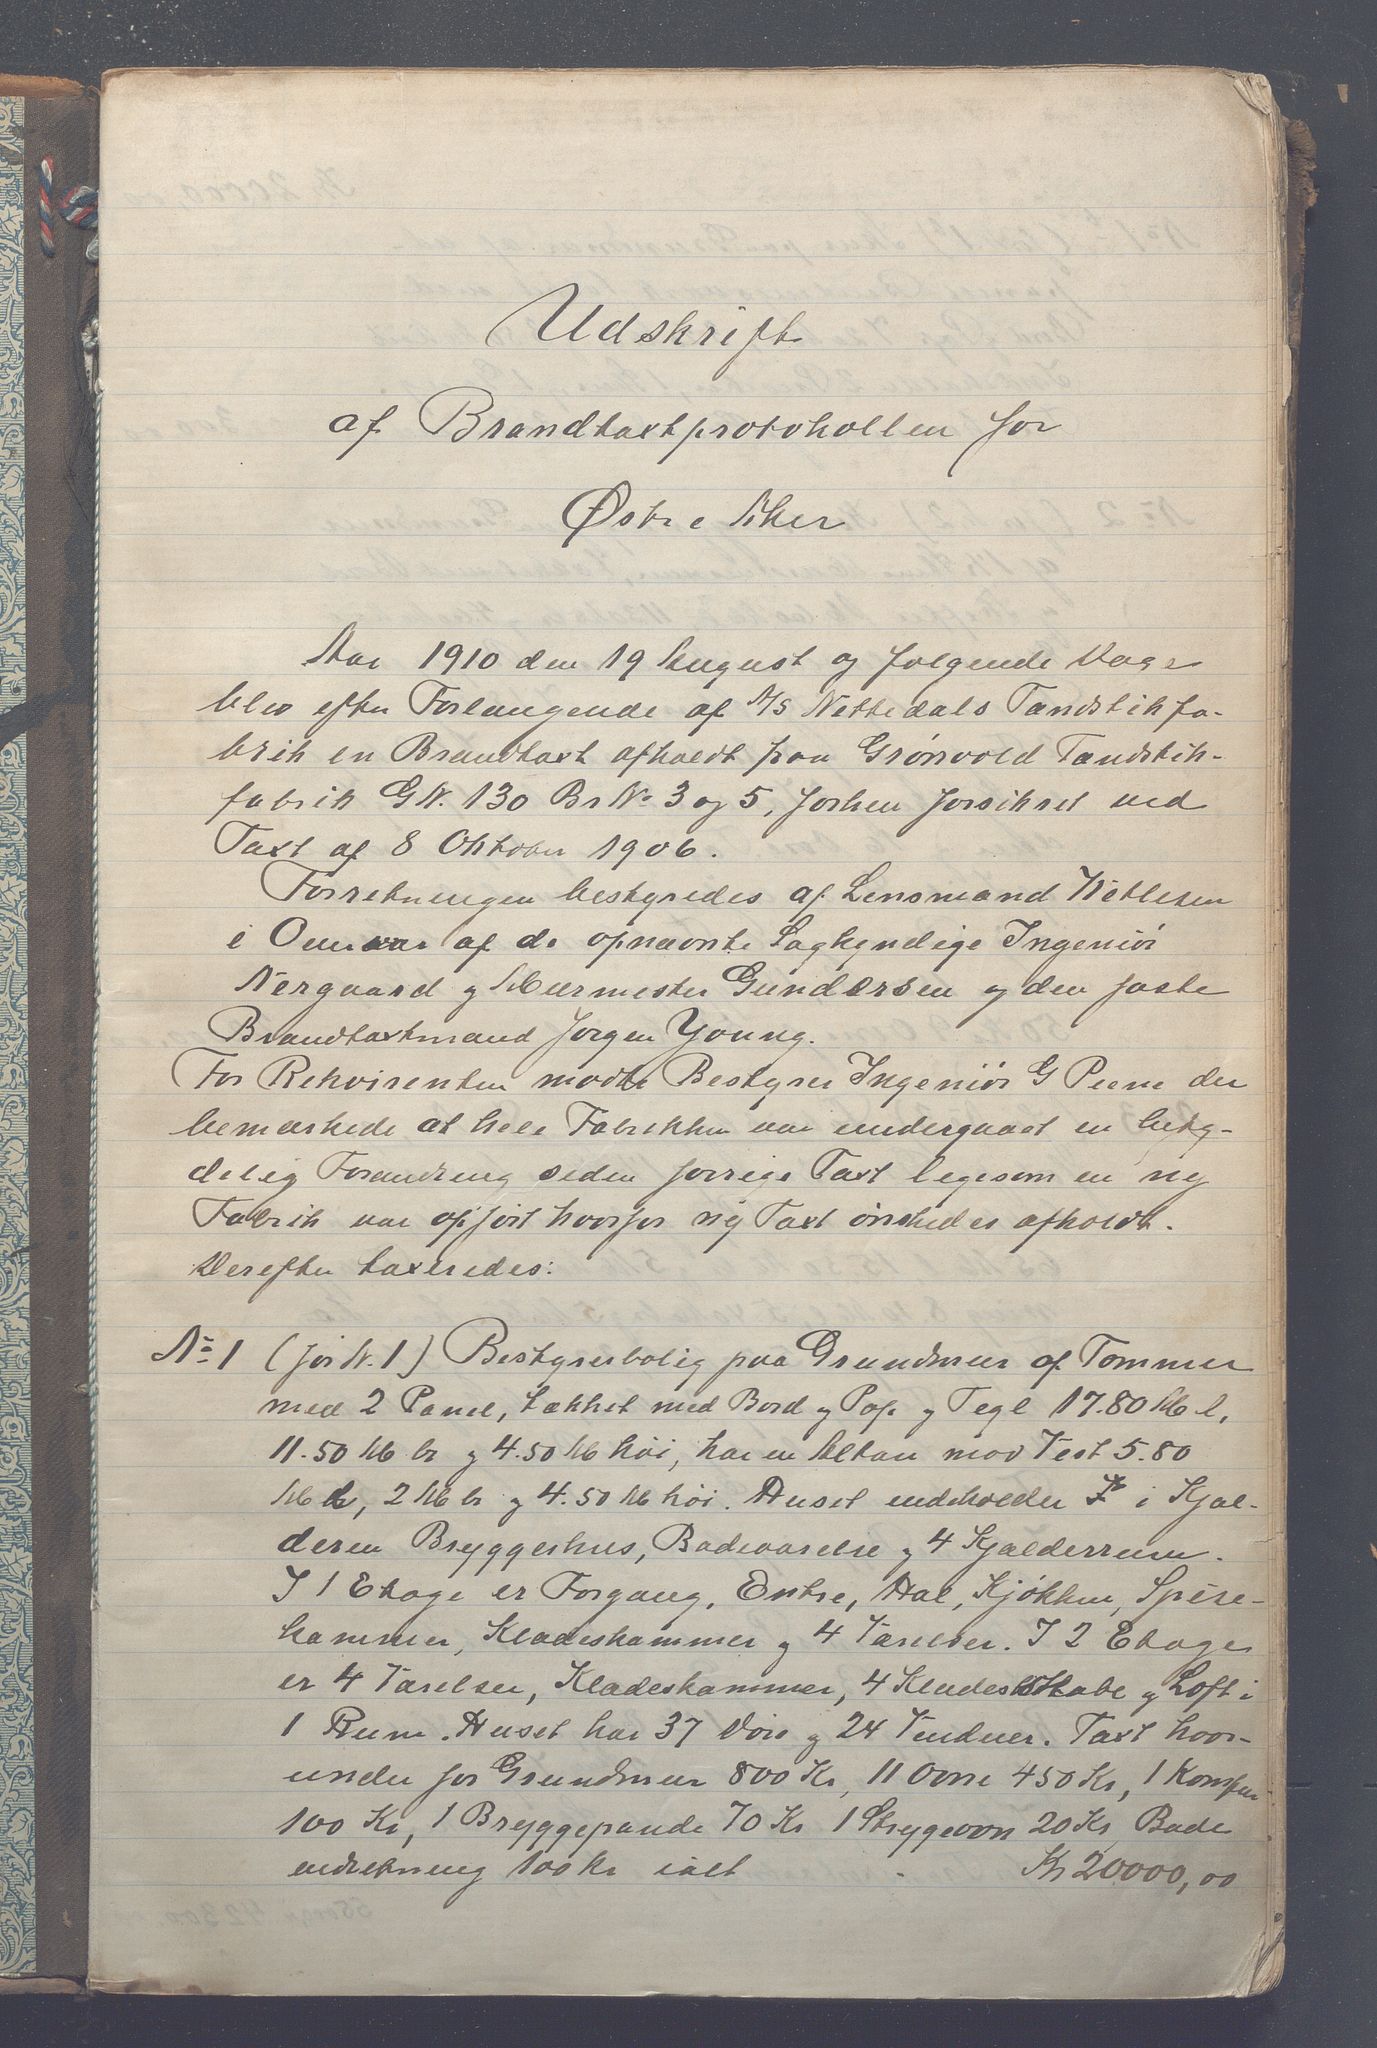 Udskrift
af Brandtaxtprotokollen for
Østre Aker
Aar 1910 den 19 August og følgende Dage
blev efter Forlangende af A/S Nittedals Tændstikfa-
brik en Brandtaxt afholdt paa Grønvold Tændstik-
fabrik GN. 130 BrNo 3 og 5, forhen forsikret ved
Taxt af 8 Oktober 1906.
Forretningen bestyredes af Lensmand Nethlesen
i Overvær af de opnævnte Sagkyndige Ingeniør
Nergaard og Murmester Gundersen og den faste
Brandtaxtmand Jørgen Young.
For Rekvirenten mødte Bestyrer Ingeniør G Peene der
bemærkede at hele Fabrikken var undergaaet en bety-
delig Forandring siden forrige Taxt legesom en ny
Fabrik var opført hvorfor ny Taxt ønskedes afholdt.
Derefter taxeredes:
No 1 (før N. 1) Bestyrerbolig paa Grundmur af Tømmer
med 2 Panel, tækket med Bord og Pap og Tegl 17.80 M l,
11.50 M br og 4.50 M høi, har en Altan mod Vest 5.80
M l, 2 M br og 4.50 M høi. Huset indeholder i Kjæl-
deren Bryggerhus, Badeværelse og 4 Kjælderrum.
I 1 Etage er Forgang, Entre, Hal, Kjøkken, Spise-
kammer, Klædeskammer og 4 Værelser. I 2 Etage
er 4 Værelser, Klædeskammer, 4 Klædeskabe og Loft i
1 Rum. Huset har 37 Døre og 24 Vinduer. Taxt hvor-
under for Grundmur 800 Kr, 11 Ovne 450 Kr, 1 Komfur
100 Kr, 1 Bryggepande 70 Kr 1 Strygeovn 20 Kr, Bade
indretning 100 Kr ialt Kr 20000,00